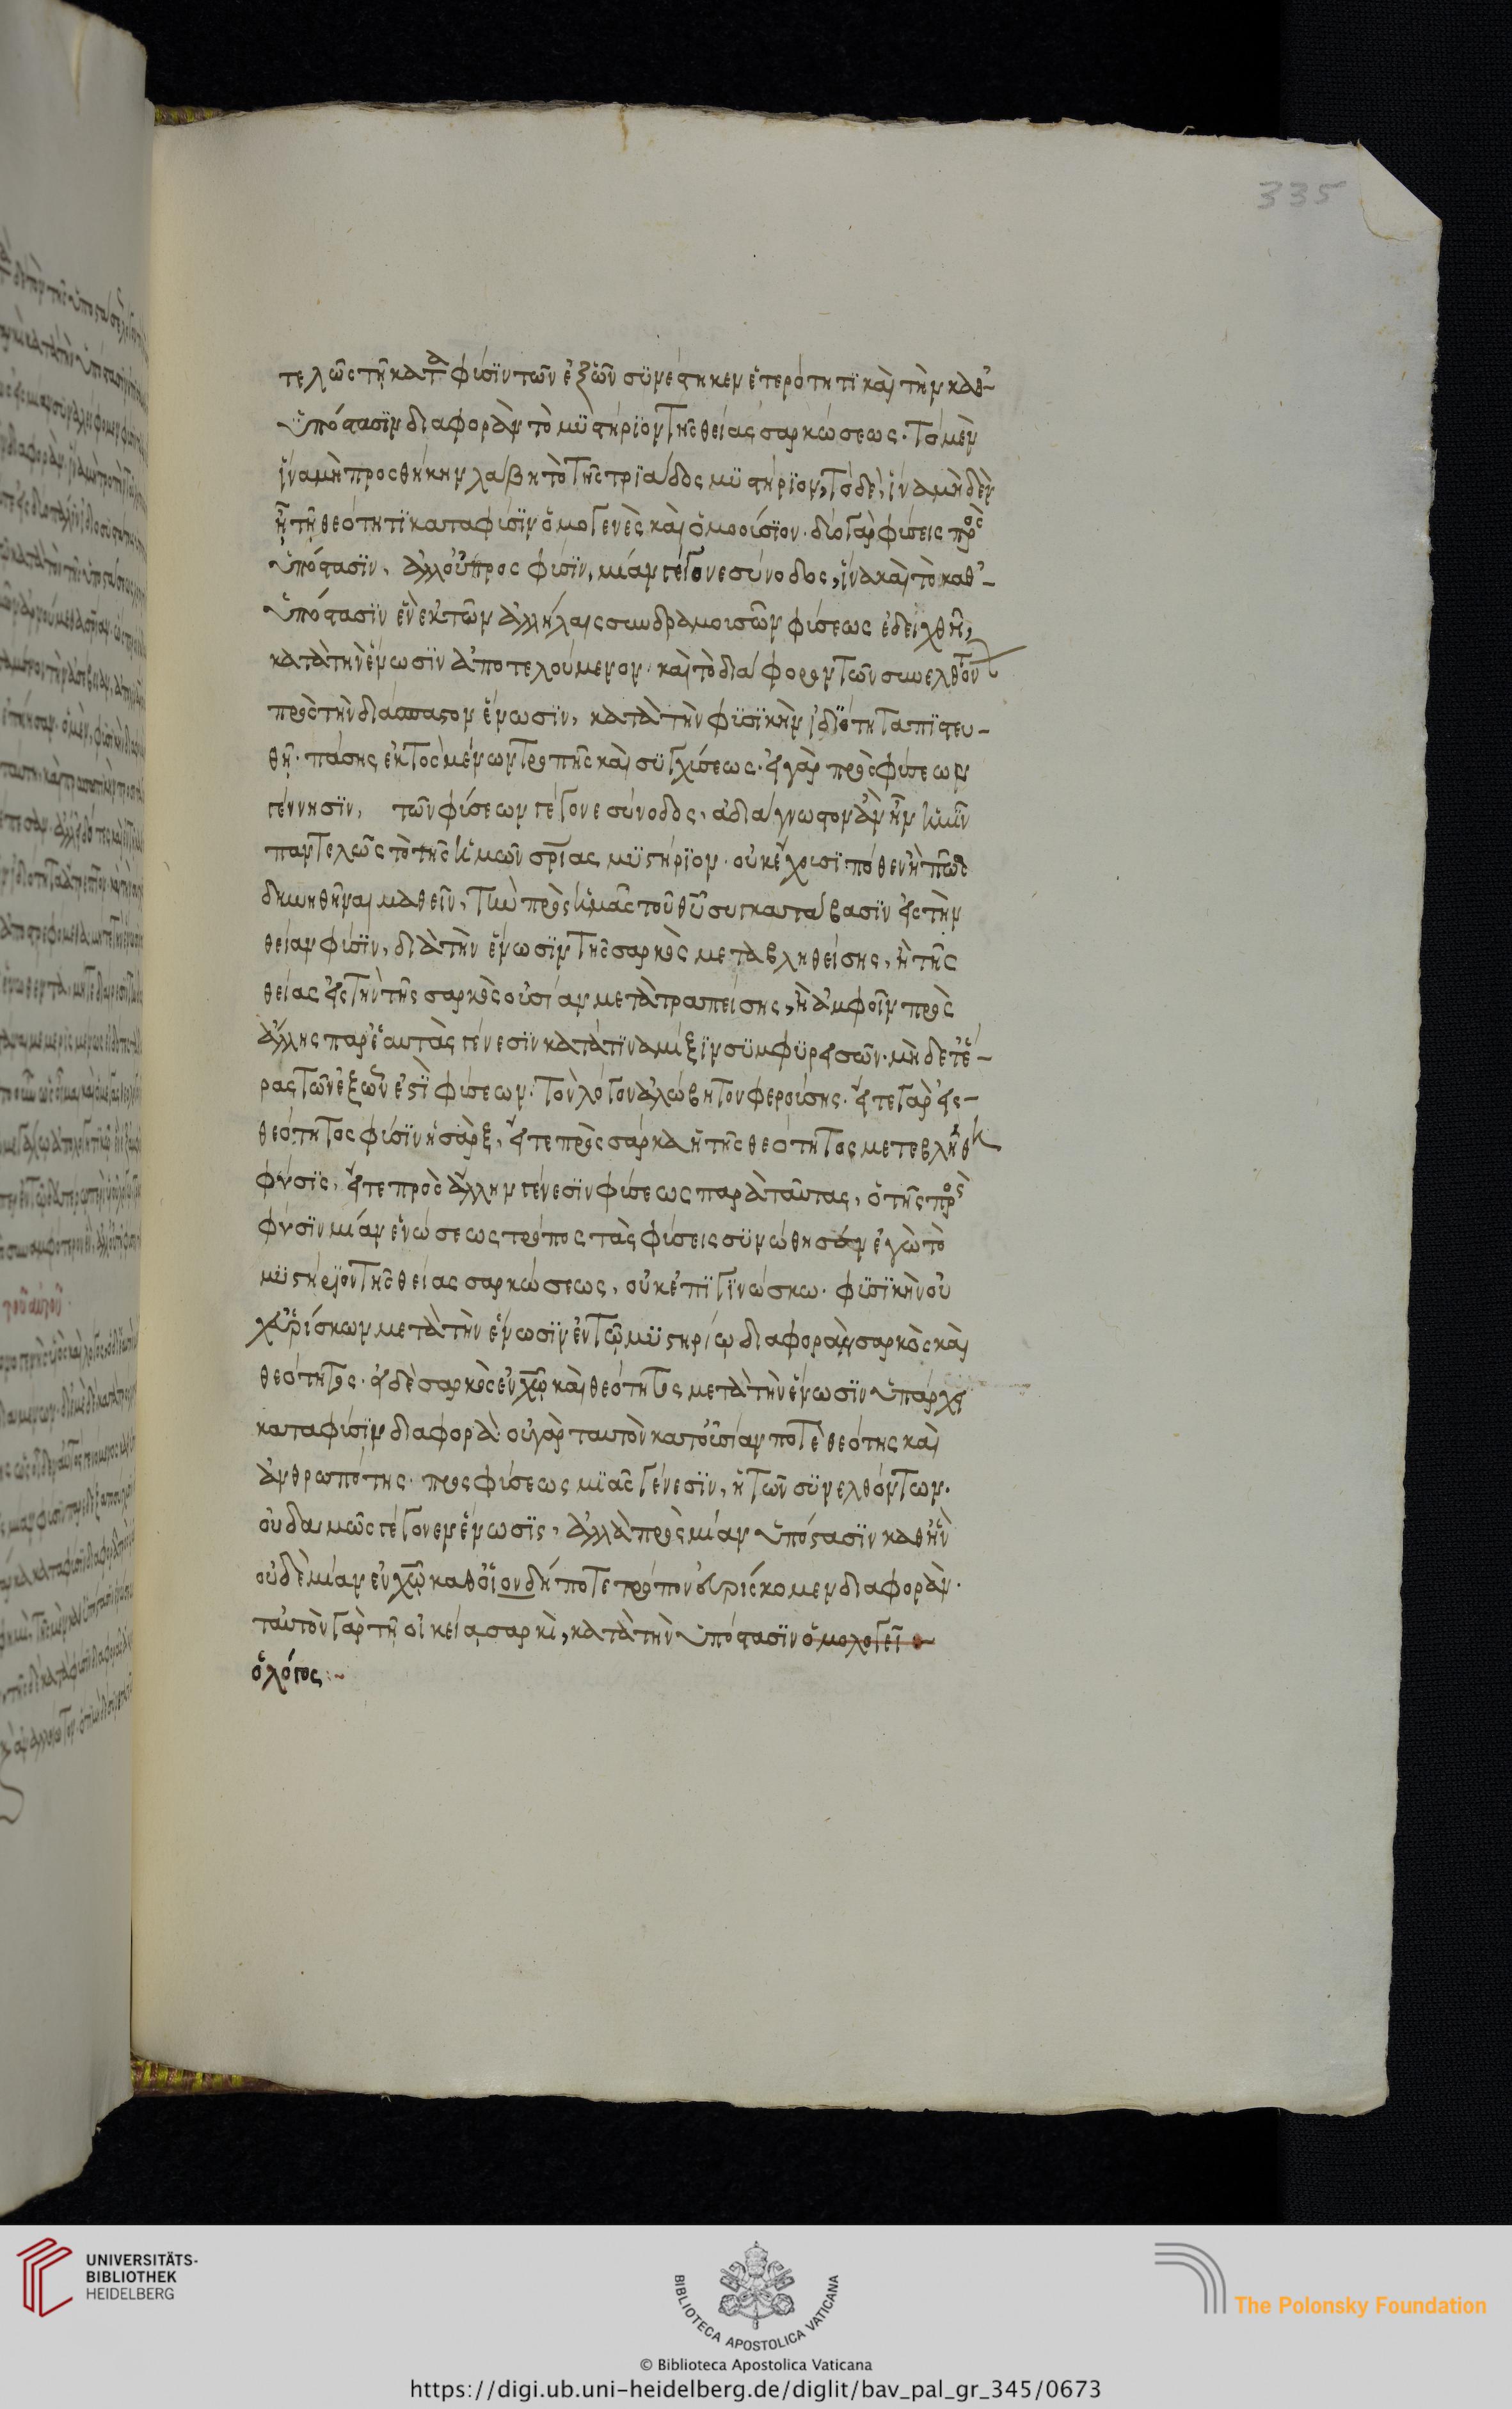 335
τελῶς τῆ κατὰ φύσϊν τῶν ἐξ ὧν συνέστηκεν ἑτερότητϊ καὶ τὴν καθ’
ὑπόστασϊν διαφορὰν τὸ μυστήριον τῆς θείας σαρκώσεως. τὸ μὲν
ἵνα μὴ προσθήκην λάβη τὸ τῆς τριάδος μυστήριον, τὸ δὲ, ἵνα μηδὲν
ἦ τῆ θεότητϊ κατα φύσϊν ὁμογενὲς καὶ ὁμοούσϊον. δύο γὰρ φύσεις πρὸς
ὑπόστασϊν, ἀλλ οὐ πρὸς φύσϊν, μίαν γέγονε σύνοδος, ἵνα καὶ τὸ καθ’
ὑπόστασϊν ἓν ἐκ τῶν ἀλλήλαις συνδραμουσῶν φύσεως ἐδείχθη,
κατὰ τὴν ἕνωσϊν ἀποτελούμενον. καὶ τὸ διάφορον τῶν συνελθόντων
πρὸς τὴν διάσπαστον ἕνωσϊν, κατὰ τὴν φυσϊκὴν ἰδϊότητα πϊστευ-
θῆ. πάσης ἐκτὸς μένων τροπῆς καὶ συγχύσεως. εἰ γὰρ πρὸς φύσεων
γέννησϊν, τῶν φύσεων γέγονε σύνοδος, ἀδιάγνωστον ἂν ἦν ἡμῖν
παντελῶς τὸ τῆς ἡμῶν σρίας μυστήριον. οὐκ ἔχουσϊ πόθεν ἢ πῶς
δυνηθῆναι μαθεῖν, τὴν πρὸς ἡμᾶς τοῦ θυ συγκατάβασϊν εἰς τὴν
θείαν φύσϊν, διὰ τὴν ἕνωσϊν τῆς σαρκὸς μεταβληθείσης, ἢ τῆς
θείας εἰς τὴν τῆς σαρκὸς οὐσίαν μετατραπείσης, ἢ ἀμφοῖν πρὸς
ἄλλης παρ ἑαυτὰς γένεσϊν κατά τϊνα μίξϊν συμφυρεισῶν. μηδετέ-
ρας τῶν ἐξ ὧν ἐστϊ φύσεων. τὸν λόγον ἀλώβητον φερούσης. εἴτε γὰρ εἰς
θεότητος φύσϊν ἡ σὰρξ, εἴτε πρὸς σάρκα ἡ τῆς θεότητος μετεβλήθη
φύσϊς, εἴτε πρὸς ἄλλην γένεσϊν φύσεως παρὰ ταύτας, ὁ τῆς πρὸς
φύσϊν μίαν ἑνώσεως τρόπος τὰς φύσεις συνώθησαν ἐγὼ τὸ
μυστήριον τῆς θείας σαρκώσεως, οὐκ ἐπϊγϊνώσκω. φυσϊκὴν οὐ
χ εὑρίσκων μετὰ τὴν ἕνωσϊν ἐν τῶ μυστηρίω διαφορὰν σαρκὸς καὶ
θεότητος. εἰ δὲ σαρκὸς ἐν χῶ καὶ θεότητος μετὰ τὴν ἕνωσϊν ὑπάρχει
κατα φύσϊν διαφορὰ. οὐ γὰρ ταυτὸν κατ οὐσίαν ποτὲ θεότης καὶ
ἀνθρωπότης. προς φύσεως μϊᾶς γένεσϊν, ἡ τῶν συνελθόντων.
οὐδαμῶς γέγονεν ἕνωσϊς, ἀλλὰ πρὸς μίαν ὑπόστασϊν καθ ἣν
οὐδὲ μίαν ἐν χῶ καθ οἷον δήποτε τρόπον εὑρίσκομεν διαφορὰν.
ταὐτὸν γὰρ τῆ οἰκεία σαρκὶ, κατὰ τὴν ὑπόστασϊν ὁμολογεῖ
ὁ λόγος :~
UNIVERSITÄTS-
BIBLIOTHEK
HEIDELBERG
BIBLIOTECA APOSTOLICA VATICANA
© Biblioteca Apostolica Vaticana
The Polonsky Foundation
https://digi.ub.uni-heidelberg.de/diglit/bav_pal_gr_345/0673